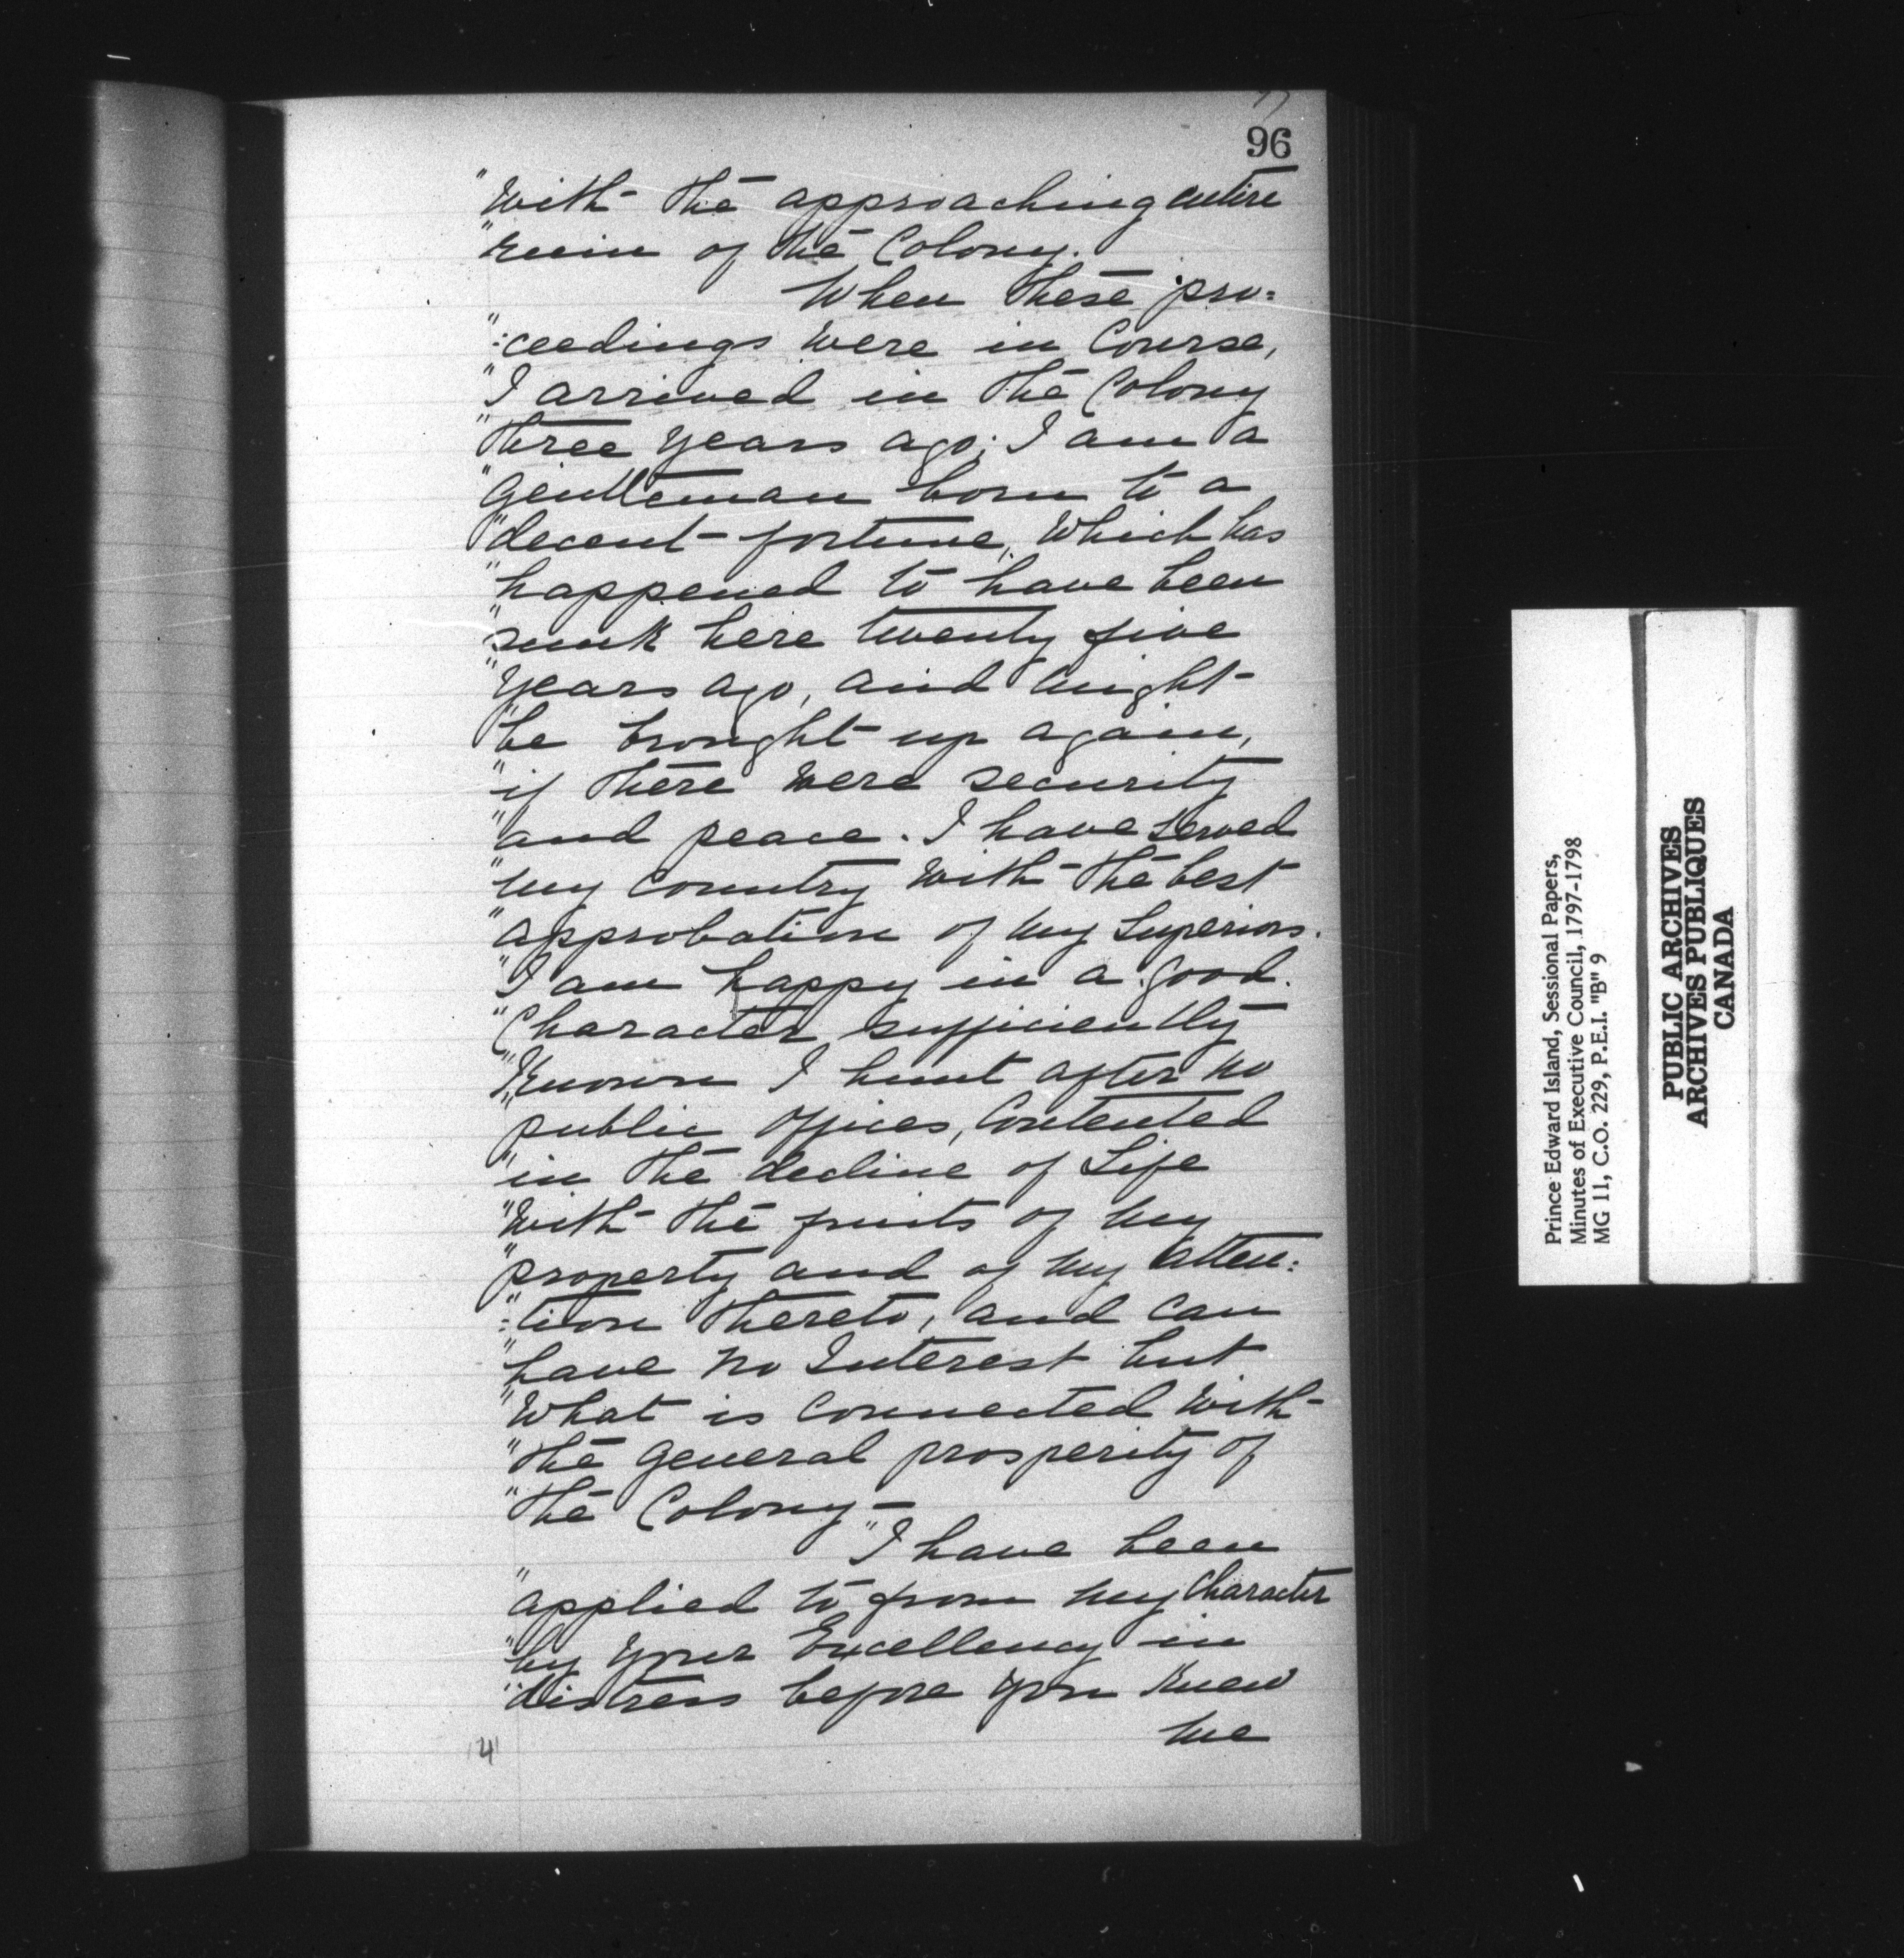 96
"With the approaching entire
"ruin of the Colony.
When these pro=
":ceedings were in Course,
"I arrived in the Colony
"three years ago; I am a
"Gentleman born to a
"decent fortune, Which has
"happened to have been
"sunk here twenty five
"years ago, and might
"be brought up again,
"if there were security
"and peace. I have served
"my Country With the best
"approbation of my Superiors.
"I am happy in a good
"Character sufficiently
"Known I hunt after no
"public offices, Contented
"in the decline of Life
"With the fruits of my
"property and of my atten:
":tion thereto, and can
"have no Interest but
"What is Connected With
"the general prosperity of
"the Colony—
"I have been
"applied to from my Character
"by Your Excellency in
"distress before you Knew
me
Prince Edward Island, Sessional Papers,
Minutes of Executive Council, 1797-1798
MG 11, C.O. 229, P.E.I. "B" 9
PUBLIC ARCHIVES
ARCHIVES PUBLIQUES
CANADA